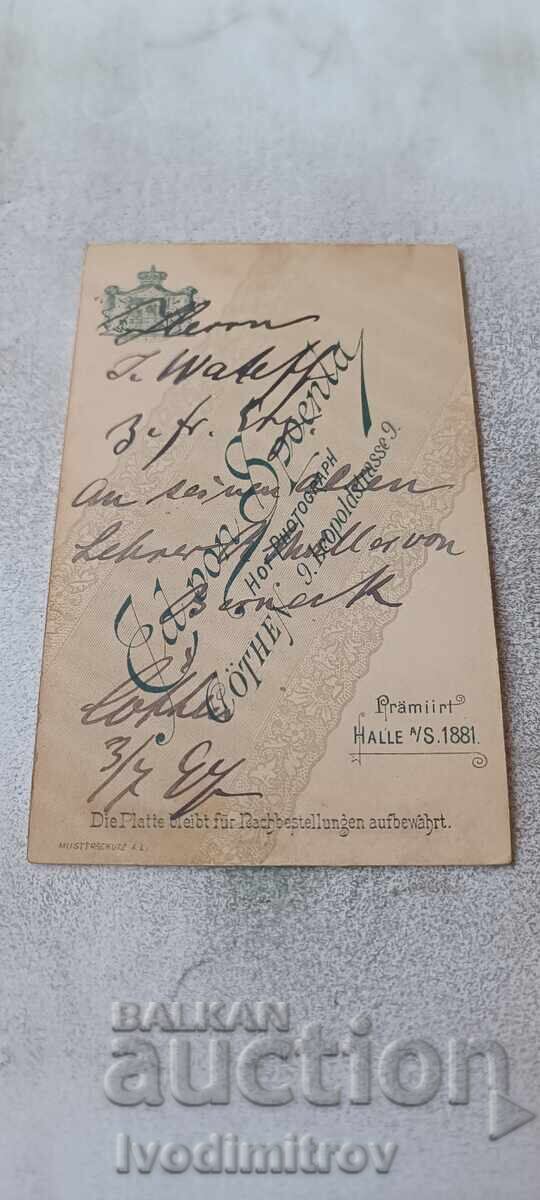 Herrn
J. Wateff
z. fr. Erg.
an seinen alten
Lehrer Müller von
Cöthen
3/7
Hof PHOTOGRAPH
CÖTHEN 9. Leopoldstrasse 9.
Prämiirt
HALLE A/S. 1881.
Die Platte bleibt für Nachbestellungen aufbewahrt.
MUSTERSCHUTZ A.L.
BALKAN
auction
Ivodimitrov